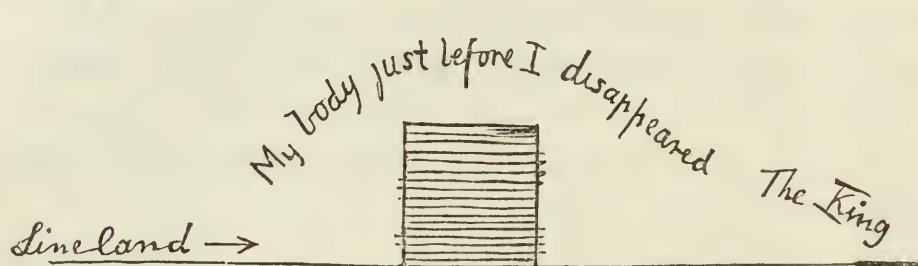 My body just before I disappeared
The King
Lineland →